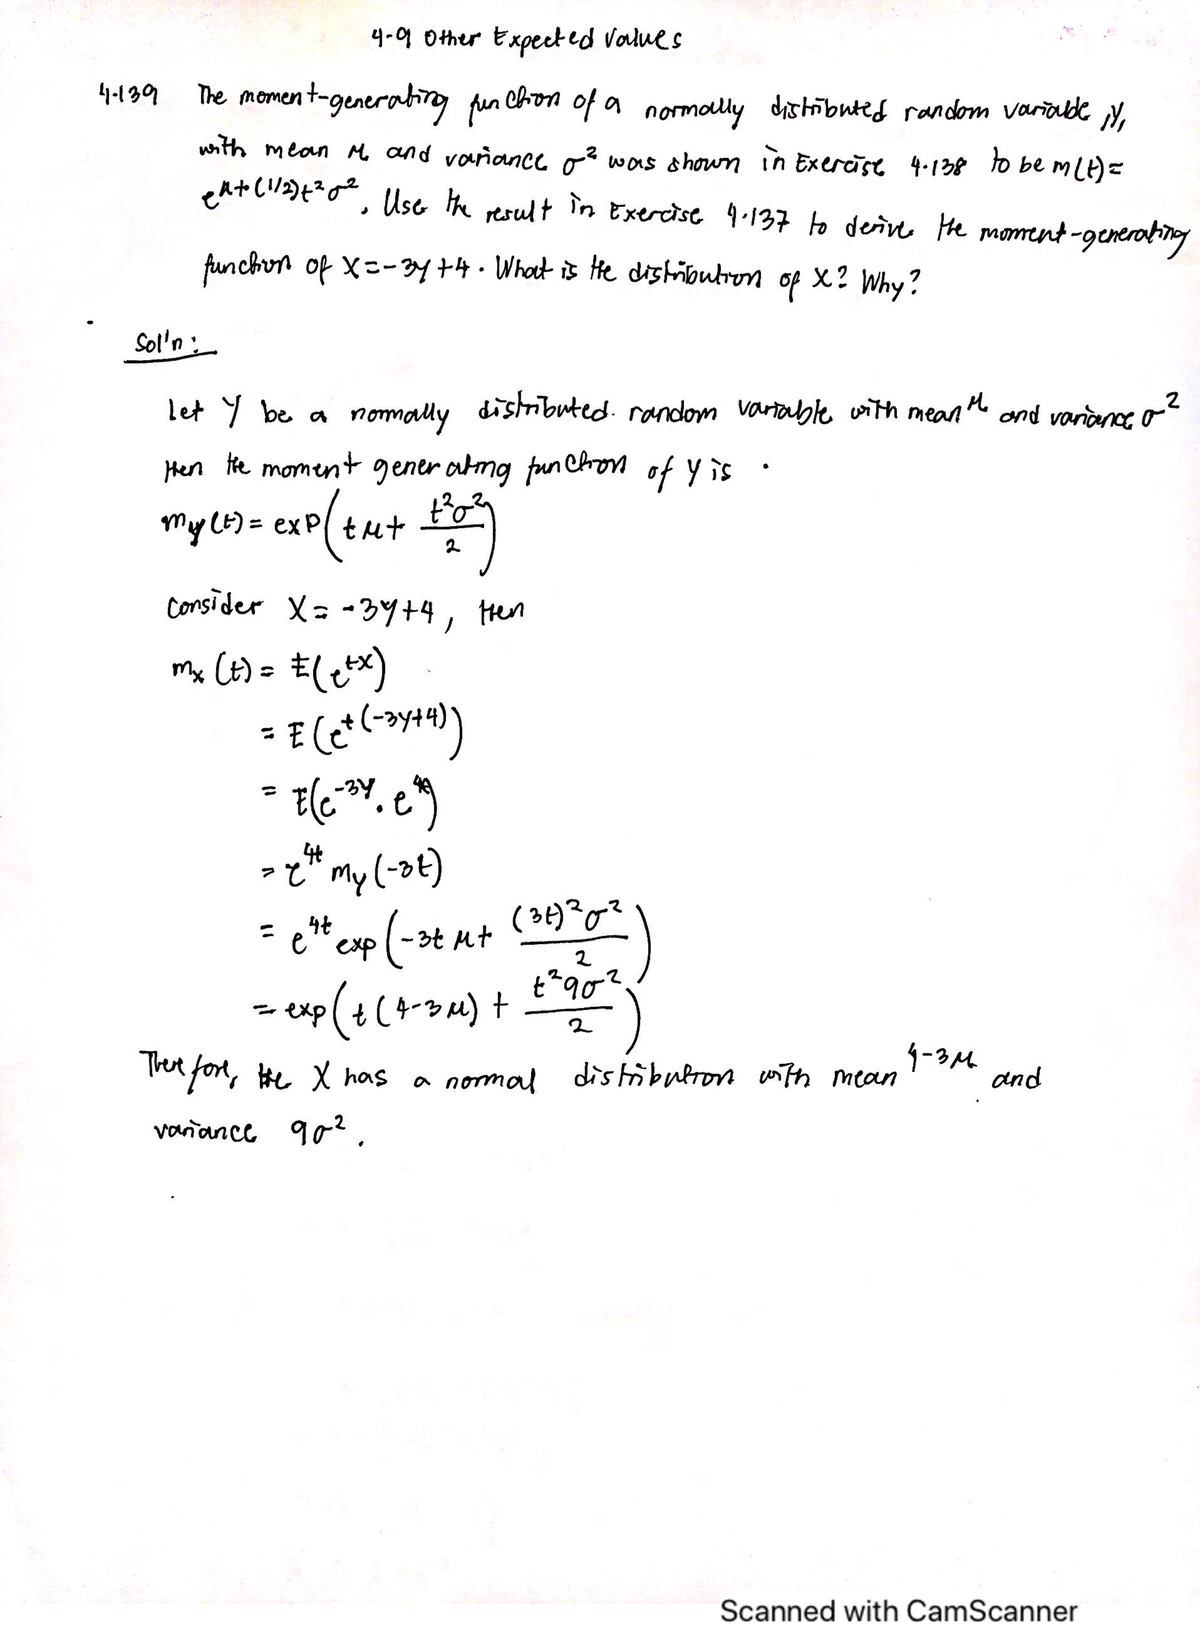 4-9 Other Expected Values
4.139 The moment-generating function of a normally distributed random variable, Y,
with mean μ and variance σ² was shown in Exercise 4.138 to be m(t)=
e^μt+(1/2)t²σ². Use the result in Exercise 4.137 to derive the moment-generating
function of X=-3Y+4. What is the distribution of X? Why?
Sol'n:
Let Y be a normally distributed random variable with mean μ and variance σ²
then the moment generating function of Y is
my(t) = exp(tμ + t²σ²/2)
Consider X = -3Y+4, then
mx(t) = E(e^tX)
= E(e^t(-3Y+4))
= E(e^-3Y . e^4t)
= e^4t my(-3t)
= e^4t exp(-3tμ + (3t)²σ²/2)
= exp(t(4-3μ) + t²9σ²/2)
Therefore, the X has a normal distribution with mean 4-3μ and
variance 9σ².
Scanned with CamScanner